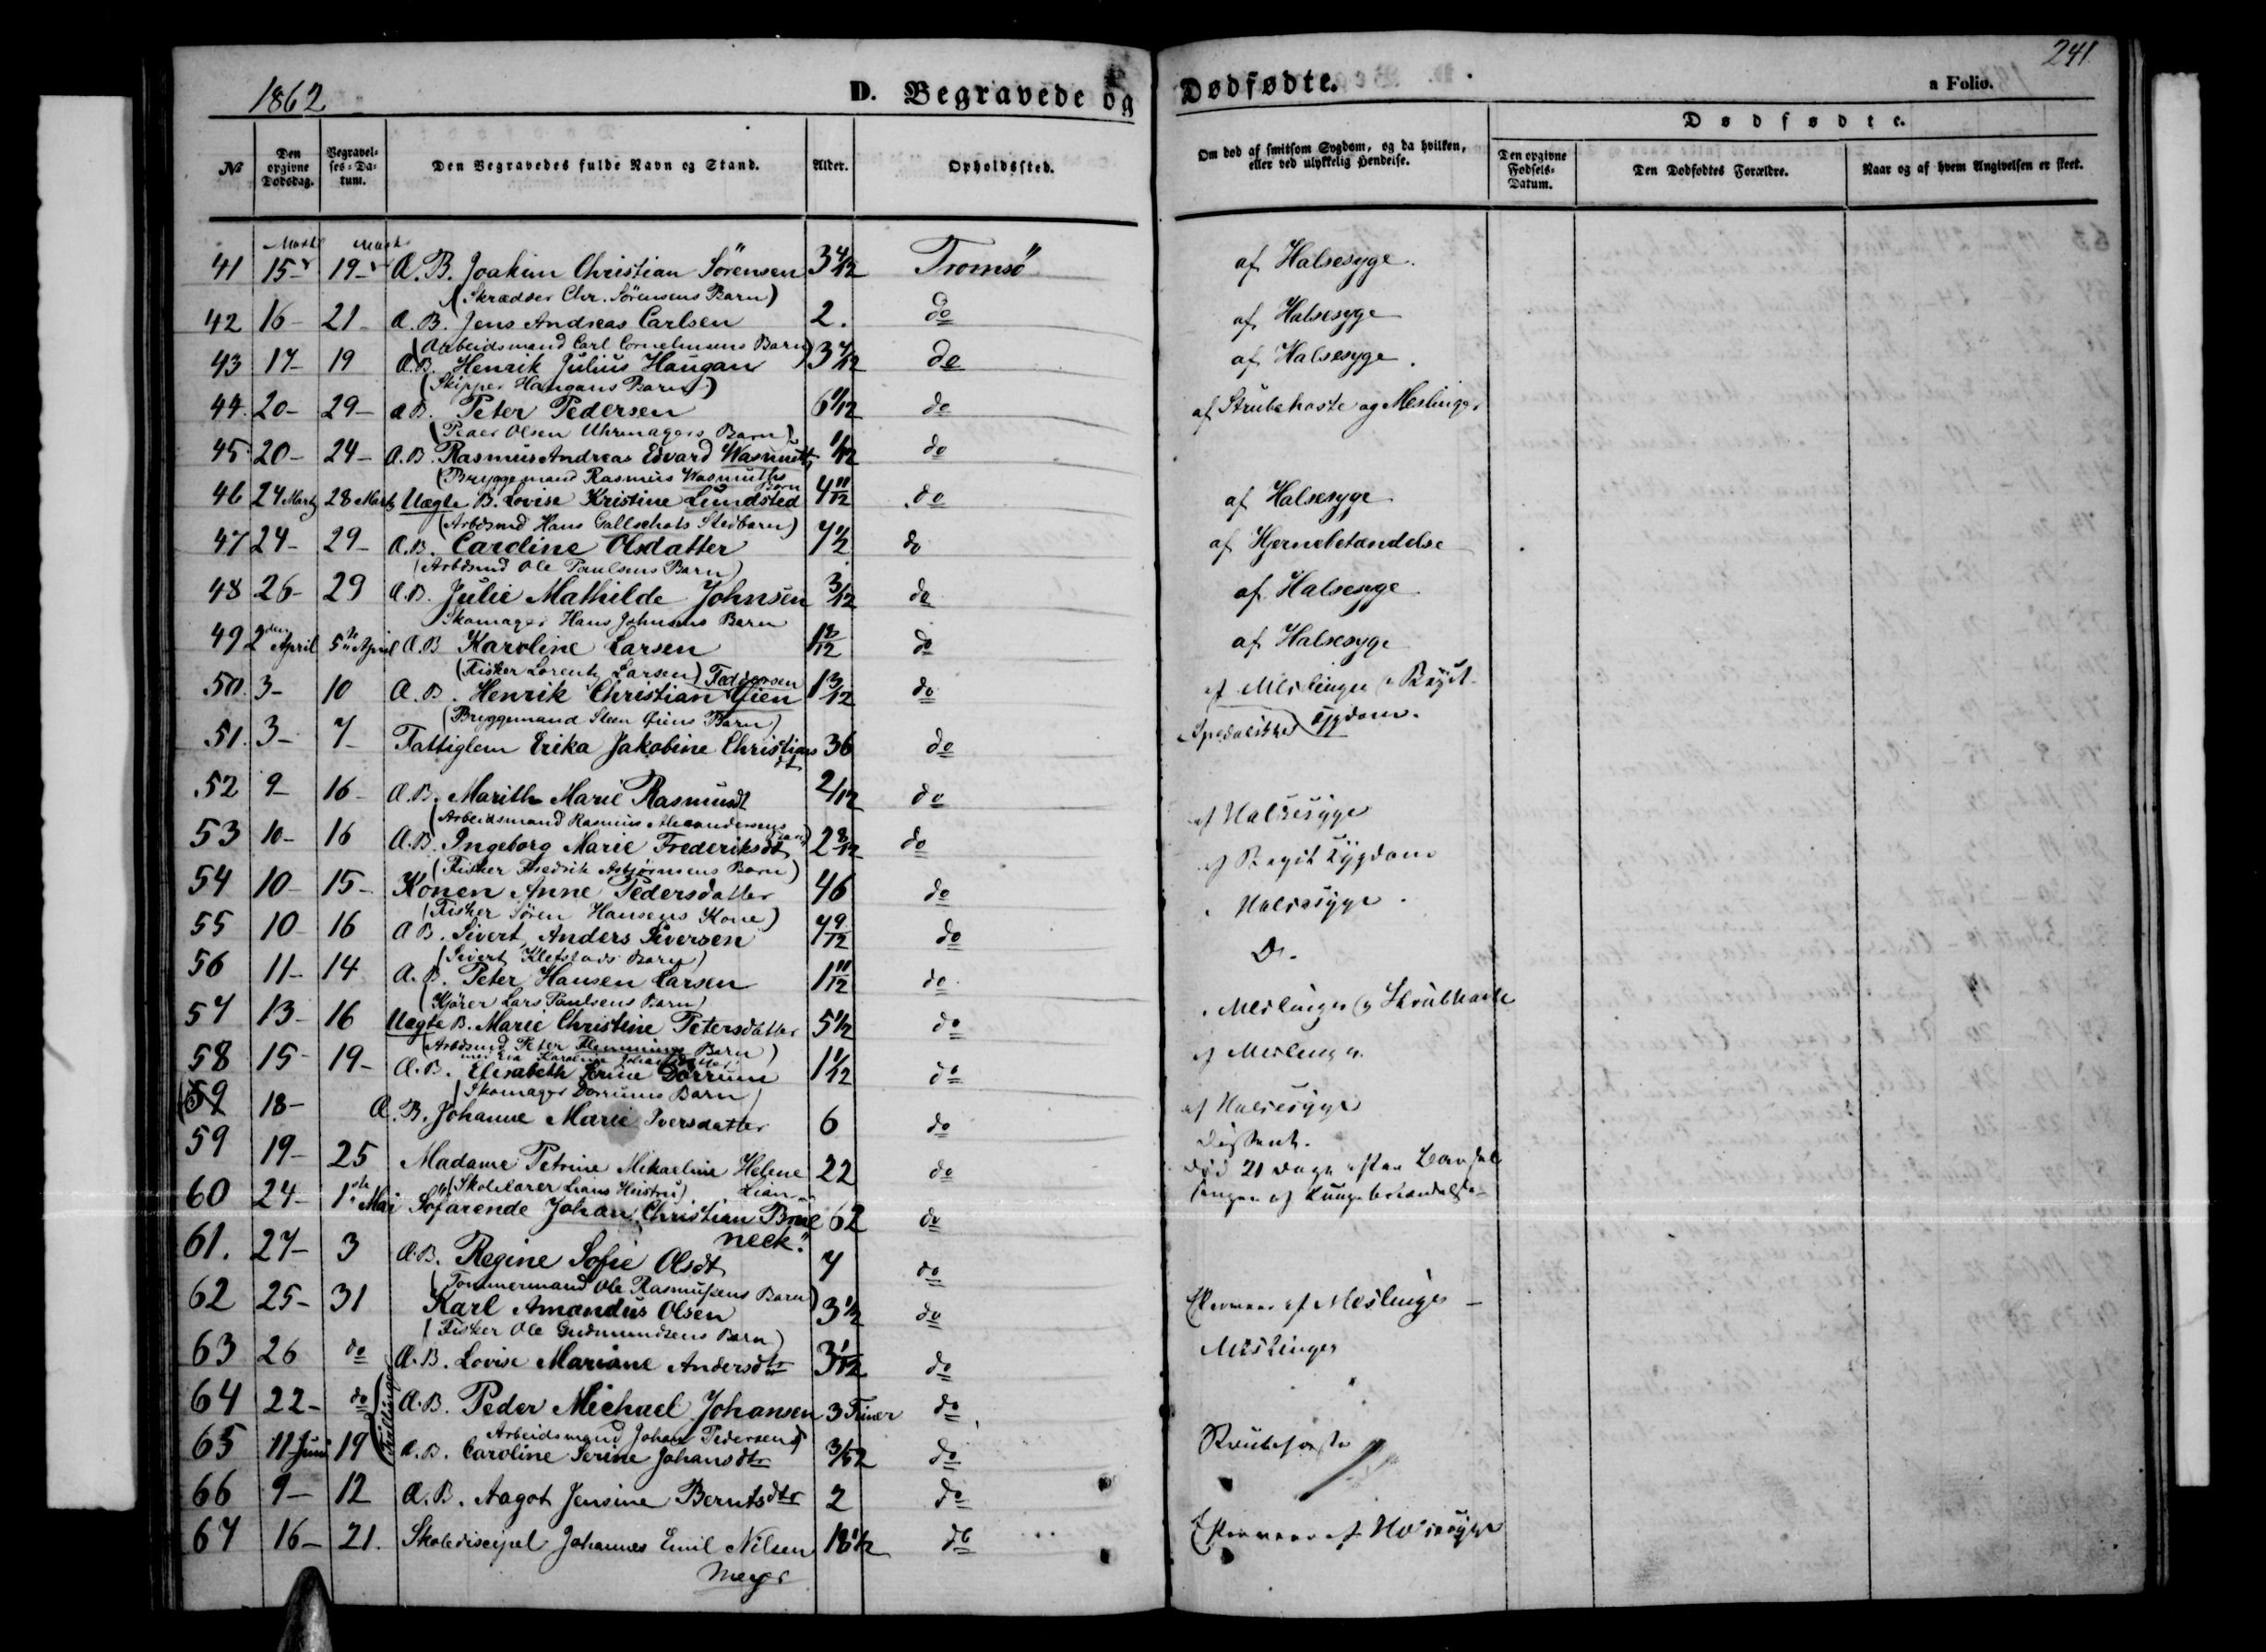 1862
D. Begravede og
Dødfødte.
241
a Folio.
No
Den opgivne Dødsdag.
Begravelses-Datum.
Den Begravedes fulde Navn og Stand.
Alder.
Opholdssted.
Om død af smitsom Sygdom, og da hvilken, eller ved ulykkelig Hendelse.
Dødfødte.
Den opgivne Fødsels-Datum.
Den Dødfødtes Forældre.
Naar og af hvem Angivelsen er skeet.
41 15 19 Æ. B. Joakim Christian Sörensen 3 4/12 Tromsö af Halsesyge.
(Skrædder Chr. Sörensens Barn)
42 16- 21- Æ. B. Jens Andreas Carlsen 2. do af Halsesyge
(Arbeidsmand Carl Corneliusens Barn)
43 17- 19 Æ.B. Henrik Julius Haugan 3 7/12 do af Halsesyge.
(Skipper Haugans Barn)
44. 20- 29- Æ B. Peter Pedersen 6/12 do af Strubehoste og Meslinger
(Peder Olsen Uhrmagers Barn)
45 20- 24- Æ.B. Rasmus Andreas Edvard Wasmuth 1/12 do
(Bryggemand Rasmus Wasmuths Barn
46 24 Marts 28 Marts Uægte B. Lovise Kristine Lundsted 4 11/12 do af Halsesyge
(Arbdsmd Hans Gallschots Stedbarn)
47 24- 29- Æ.B. Caroline Olsdatter 7 1/2 do af Hjernebetændelse
(Arbdsmd Ole Paulsens Barn)
48 26- 29 Æ.B. Julie Mathilde Johnsen 3/12 do af Halsesyge
Skomager Hans Johnsens Barn
49 2den April 5te April Æ.B Karoline Larsen do af Halsesyge
(Fisker Lorentz Larsen) Feddersen
50. 3- 10 Æ. B. Henrik Christian Gien 1 3/12 do af Meslinger & Bryst-
(Bryggemand Steen Giens Barn) sygdom.
51. 3- 7- Fattiglem Erika Jakobine Christians dt 36 do Spedalskhed
52 9- 16- Æ.B. Marith Marie Rasmusdt 2/12 do af Halsesyge
(Arbeidsmand Rasmus Alexandersens Barn)
53 10- 16 Æ.B. Ingeborg Marie Frederiksdt 2 8/12 do af Bryst Sygdom
(Fisker Fredrik Asbjörnsens Barn)
54 10- 15- Konen Anne Pedersdatter 46 do Halsesyge.
(Fisker Sören Hansens Kone)
55 10 16 Æ B. Sivert Anders Siversen 7 9/12 do Do.
(Sivert Klefstads Barn)
56 11- 14 Æ. B. Peter Hansen Larsen 1 11/12 do Meslinger og Strubhoste
(Kjörer Lars Paulsens Barn)
57 13- 16 Uægte B. Marie Christine Petersdatter 5 1/2 do af Meslinger
(Arbdsmd Peter Flemmings Barn)
58 15- 19- Æ.B. Elisabeth Serine Dorrum 1 1/12 do
(Skomager Dorrums Barn)
59 18- Æ. B. Johanne Marie Iversdatter 6 do af Halsesyge
Dissent.
59 19- 25 Madame Petrine Mikaeline Helene Lian 22 do død 21 Dage efter Barsel-
(Skolelærer Lians Hustru) sengen af Lungebetændelse
60 24- 1ste Mai Söfarende Johan Christian Brü neck. 62 do
61. 27- 3 Æ.B. Regine Sofie Olsdt 7 do
(Tömmermand Ole Rasmussens Barn)
62 25- 31 Karl Amandus Olsen 3 1/2 do Efterveer af Meslinger
(Fisker Ole Gudmundsens Barn)
63 26 do Æ.B. Lovise Mariane Andersdtr 3 1/12 do Meslinger
64 22- do Æ.B. Peder Michael Johansen 3 Timer do
Tvillinger
Arbeidsmand Johan Pedersens
65 11 Juni 19 Æ.B. Caroline Serine Johansdtr 3/52 do Strubehoste
66 9- 12 Æ.B. Aagot Jensine Berntsdtr 2 do
67 16- 21. Skolediscipel Johannes Emil Nilsen do Efterveer af Halsesyge
Meyer